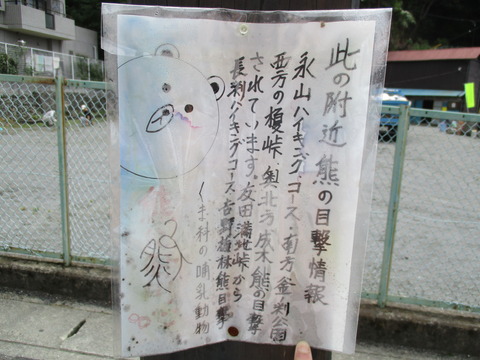 此の附近熊の目撃情報
永山ハイキング・コース・南方釜ノ淵公園
西方の榎峠・奥北方成木熊の目撃
されています。友田満地峠から
長淵ハイキングコース吉野梅林熊目撃
くま科の哺乳動物